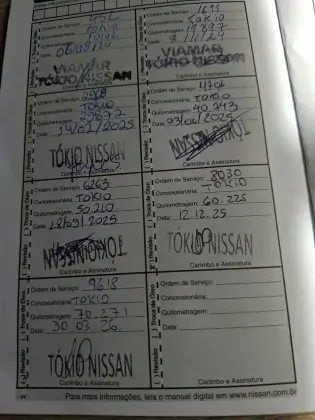 Ordem de Serviço: 452
Concessionária: TOKIO
Quilometragem:
Data: 06/08/24
VIAMAR
TÓKIO NISSAN
Carimbo e Assinatura
Ordem de Serviço: 1691
Concessionária: TOKIO
Quilometragem: 19827
Data:
VIAMAR
TÓKIO NISSAN
Carimbo e Assinatura
( ) Revisão ( ) Troca de Óleo
Ordem de Serviço:
Concessionária: TOKIO
Quilometragem: 29872
Data: 14/02/2025
TÓKIO NISSAN
Ordem de Serviço: 4704
Concessionária: TOKIO
Quilometragem: 40.243
Data: 23/06/2025
TOKIO NISSAN
Carimbo e Assinatura
( ) Revisão ( ) Troca de Óleo
Ordem de Serviço: 6263
Concessionária: TOKIO
Quilometragem: 50.210
Data: 18/09/2025
TOKIO NISSAN
Carimbo e Assinatura
( ) Revisão ( ) Troca de Óleo
Ordem de Serviço: 8030
Concessionária: TOKIO
Quilometragem: 60.225
Data: 12.12.25
TÓKIO NISSAN
Carimbo e Assinatura
( ) Revisão ( ) Troca de Óleo
Ordem de Serviço: 9618
Concessionária: TOKIO
Quilometragem: 70.271
Data: 30 03 26.
TÓKIO NISSAN
Carimbo e Assinatura
( ) Revisão ( ) Troca de Óleo
Ordem de Serviço:
Concessionária:
Quilometragem:
Data:
Carimbo e Assinatura
Para mais informações, leia o manual digital em www.nissan.com.br